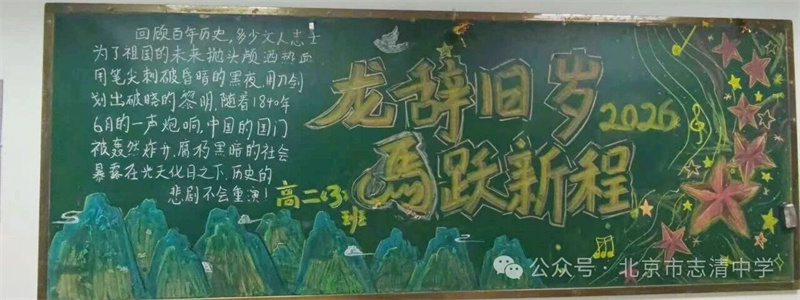 回顾百年历史,多少文人志士
为了祖国的未来抛头颅洒热血
用笔尖刺破昏暗的黑夜,用刀剑
划出破晓的黎明,随着1840年
6月的一声炮响,中国的国门
被轰然炸开,腐朽黑暗的社会
暴露在光天化日之下,历史的
悲剧不会重演!
龙辞旧岁
馬跃新程
2026
高二(3)
班
公众号·北京市志清中学